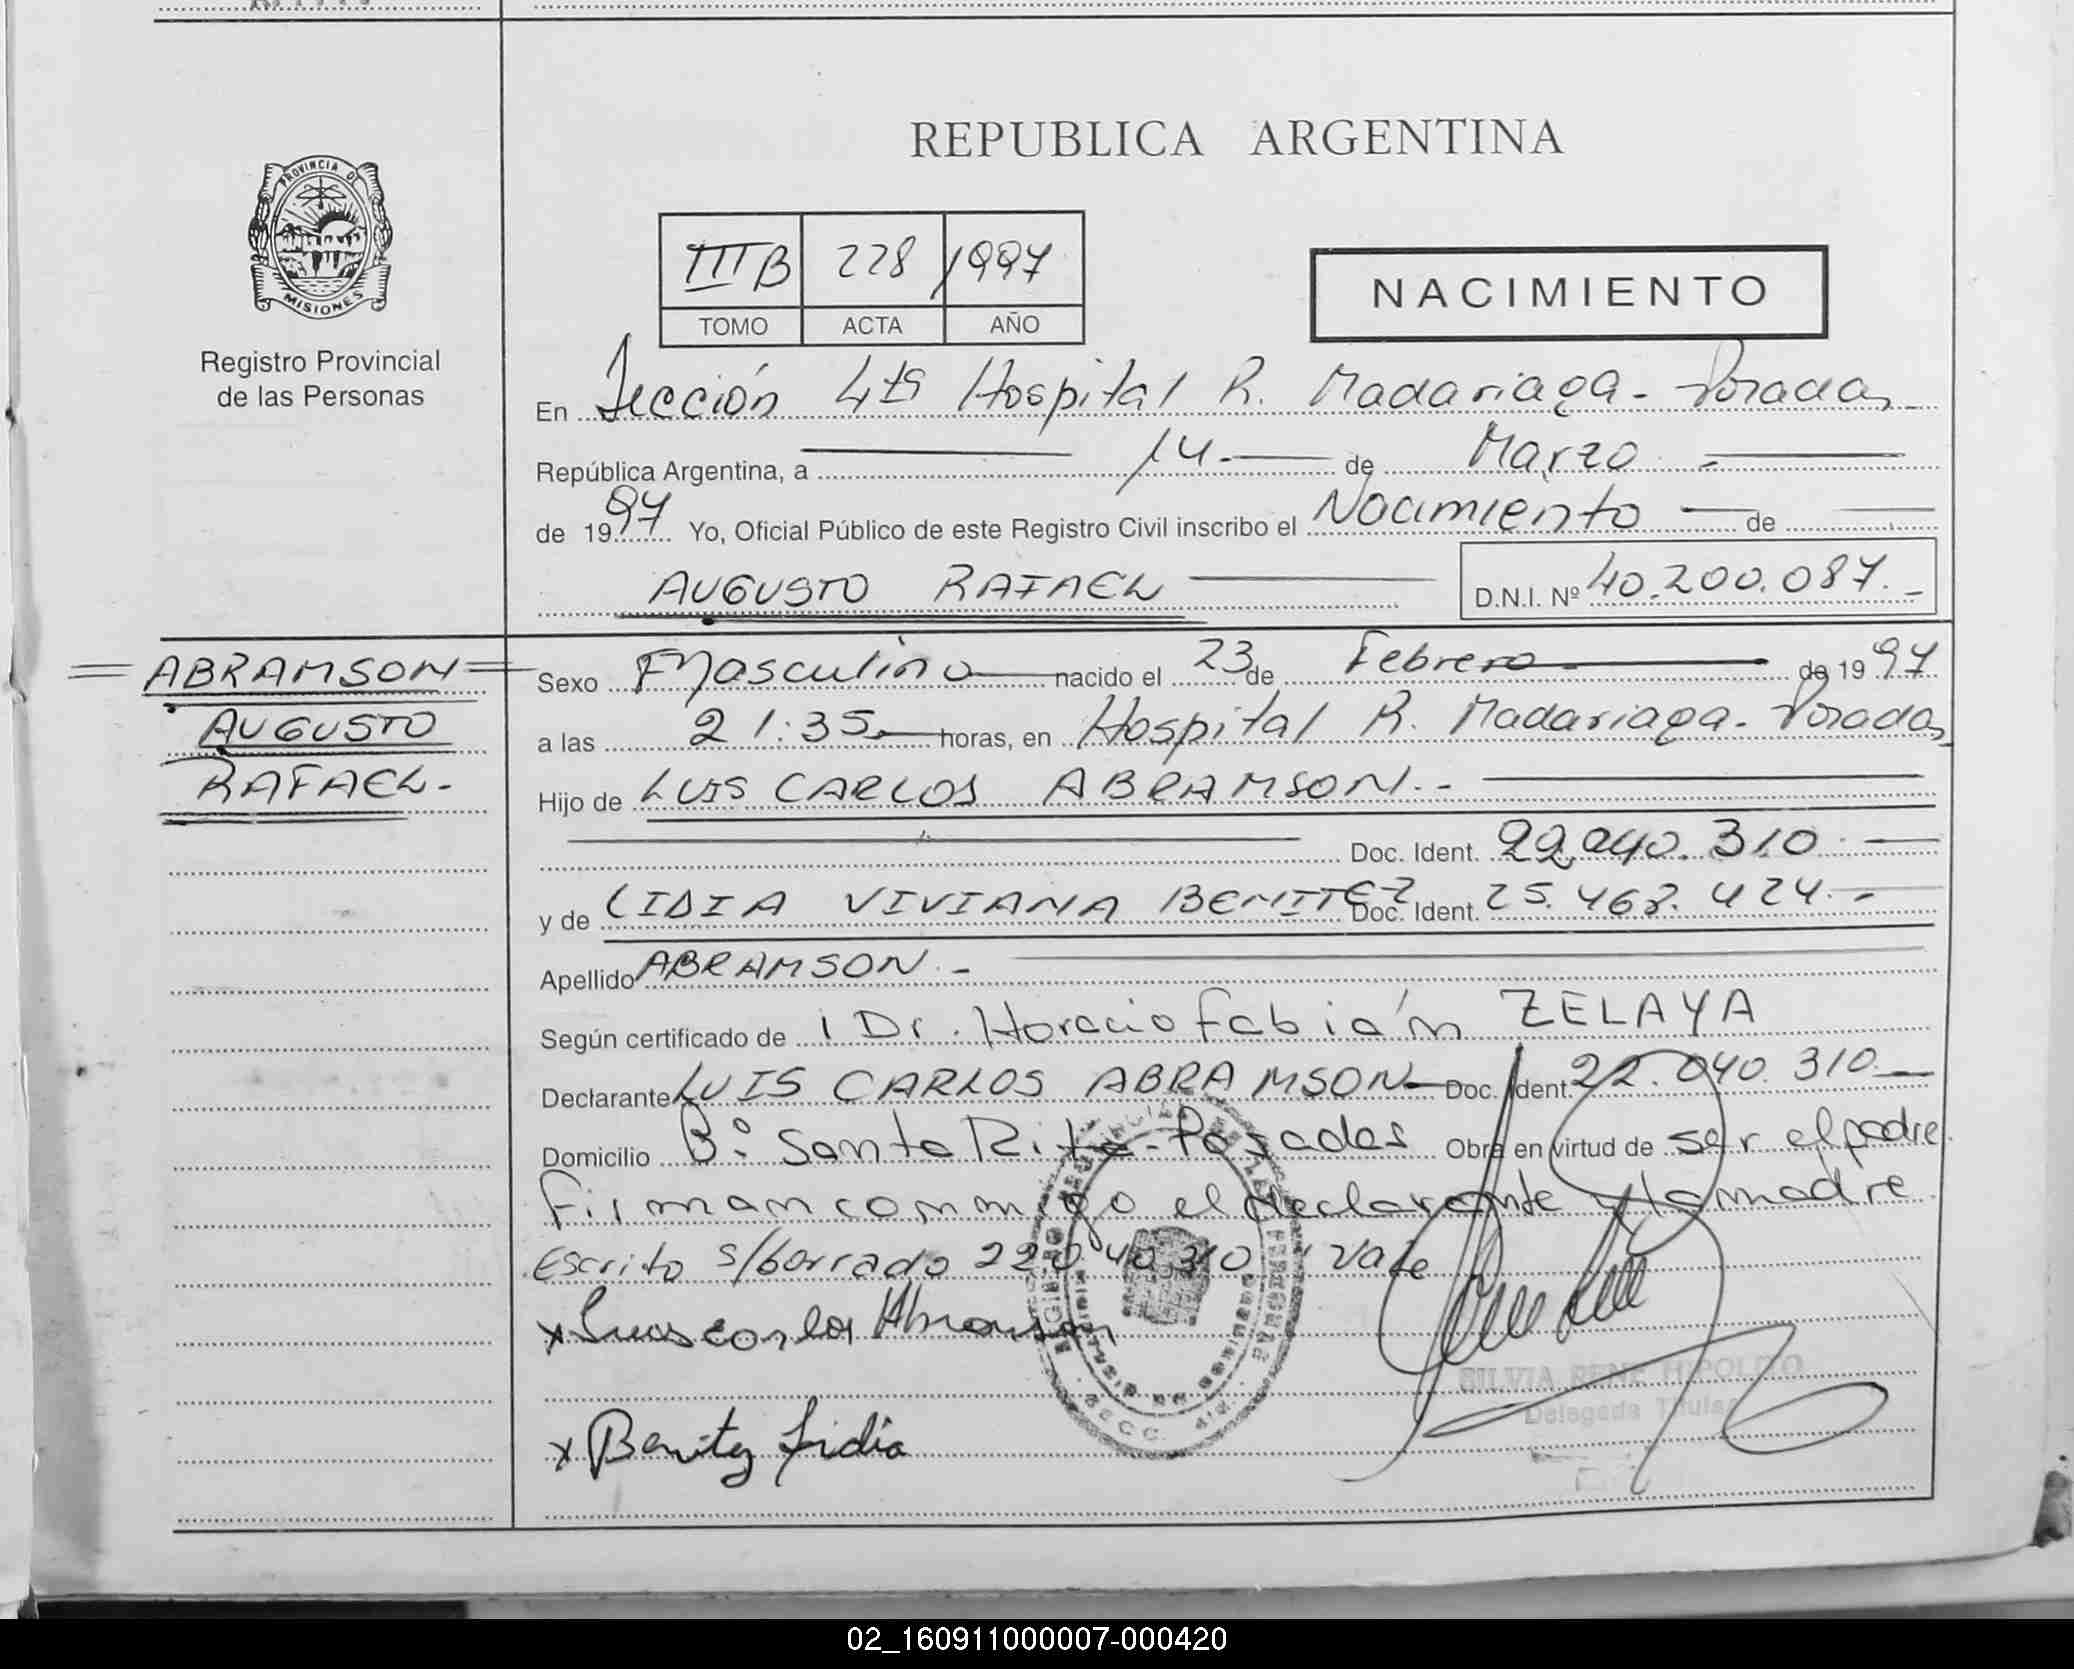 REPUBLICA ARGENTINA
PROVINCIA DE
MISIONES
Registro Provincial
de las Personas
III B 228 1997
TOMO ACTA AÑO
NACIMIENTO
En Sección 4ta Hospital R. Madariaga - Posadas
República Argentina, a 14 de Marzo
de 1997 Yo, Oficial Público de este Registro Civil inscribo el Nacimiento de
AUGUSTO RAFAEL D.N.I. Nº 40.200.087.-
ABRAMSON
AUGUSTO
RAFAEL.-
Sexo Masculino nacido el 23 de Febrero de 1997
a las 21:35 horas, en Hospital R. Madariaga - Posadas
Hijo de LUIS CARLOS ABRAMSON.-
Doc. Ident. 22.040.310
y de LIDIA VIVIANA BENITEZ Doc. Ident. 25.462.424.-
Apellido ABRAMSON.-
Según certificado de Dr. Horacio Fabián ZELAYA
Declarante LUIS CARLOS ABRAMSON Doc. Ident. 22.040.310
Domicilio Bº Santa Rita - Posadas Obra en virtud de ser el padre
firman conmigo el declarante y la madre
Escrito s/borrado 22040310 Vale
x Luis carlos Abramson
SILVIA RENE HIPOLITO
Delegada Titular
x Benitez Lidia
02_160911000007-000420